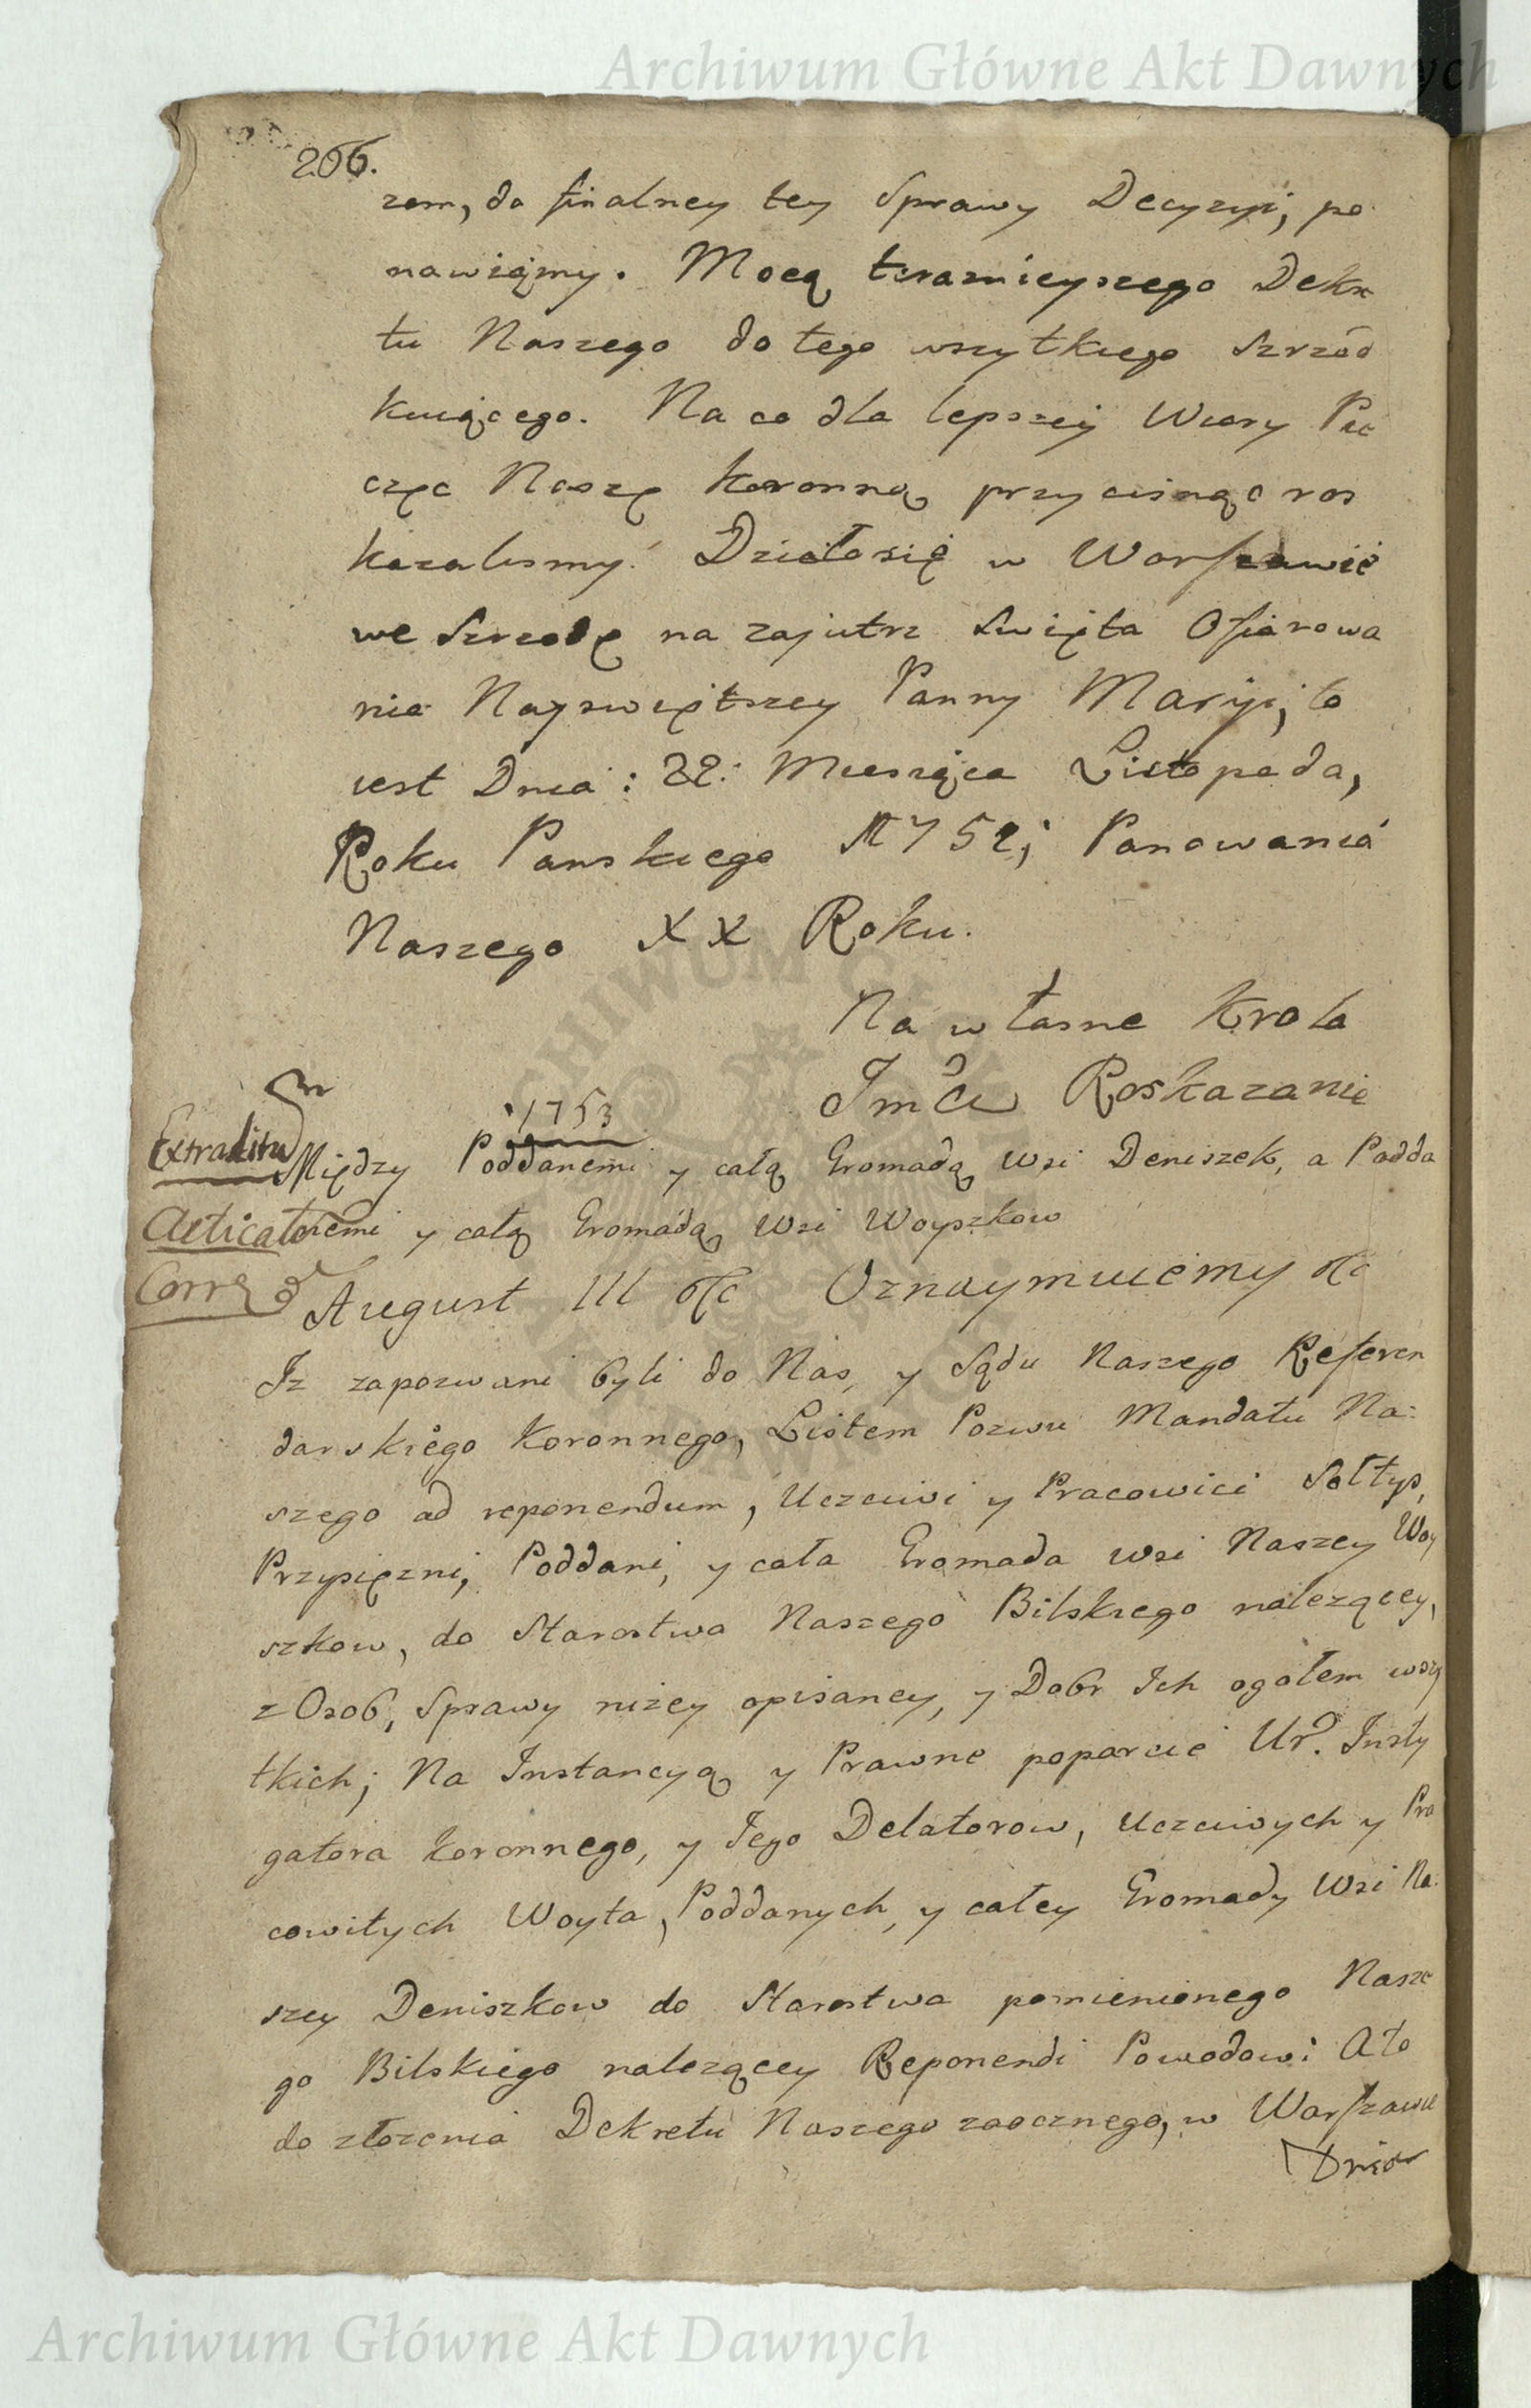 Archiwum Główne Akt Dawnych
206.
zem, do finalney tey Sprawy Decyzyi, po
nawiąmy. Mocą teraznieyszego Dekre
tu Naszego do tego wszytkiego Szrzód
kuiącego. Na co dla lepszey Wiary Pie
częc Naszę Koronną przycisnąc ros
kazalismy. Działo się w Warszawie
we Szrzodę na zajutrz Swięta Ofiarowa
nia Nayswiętszey Panny Maryi, to
iest Dnia : 22. Miesiąca Listopada,
Roku Panskiego 1752; Panowania
Naszego XX Roku.
Na własne Krola
Jmci Roskazanie
1753
Extraditum Między Poddanemi y całą Gromadą Wsi Deniszek, a Podda
Acticatum nemi y całą Gromadą Wsi Woyszkow
Corr August III etc Oznaymuiemy etc
Iz zapozwani byli do Nas, y Sądu Naszego Referen
darskiego Koronnego, Listem Pozwu Mandatu Na:
szego ad reponendum, Uczciwi y Pracowici Sołtys,
Przysięzni, Poddani, y cała Gromada wsi Naszey Woy
szkow, do Starostwa Naszego Bilskiego nalezącey,
z Osob, Sprawy nizey opisaney, y Dobr Ich ogołem wszy
tkich; Na Instancyą y Prawne poparcie Ur. Insty
gatora Koronnego, y Iego Delatorow, Uczciwych y Pra
cowitych Woyta, Poddanych, y całey Gromady Wsi Na:
szey Deniszkow do Starostwa pomienionego Nasze
go Bilskiego nalezącey Reponendi Powodowi A to
do złozenia Dekretu Naszego zaocznego, w Warszawie
Dnia
Archiwum Główne Akt Dawnych